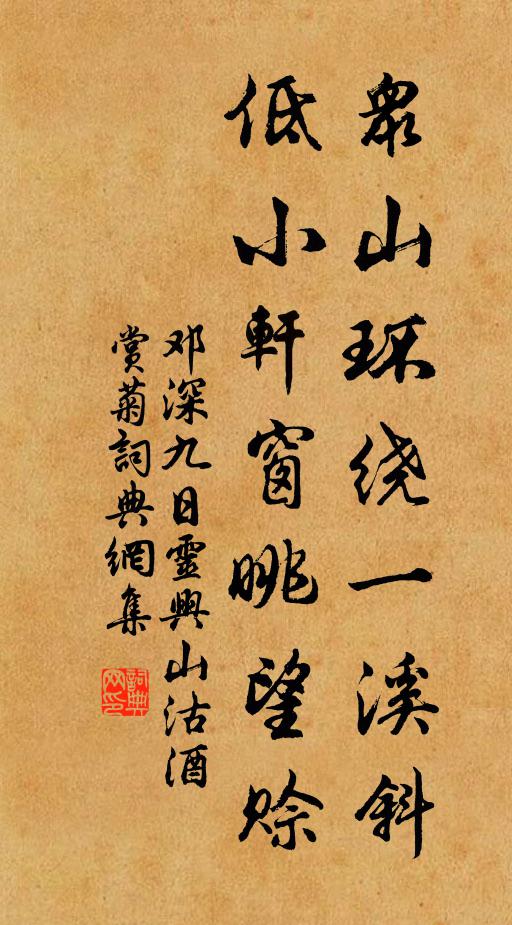 眾山环绕一溪斜
低小軒窗眺望赊
邓深九日靈興山沽酒
賞菊詞典網集
詞典
网印